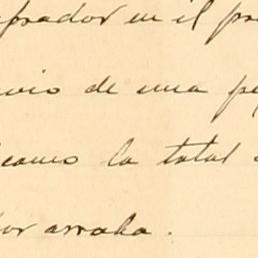 prador en el pre
vio de una pe
como la total
or arroba.